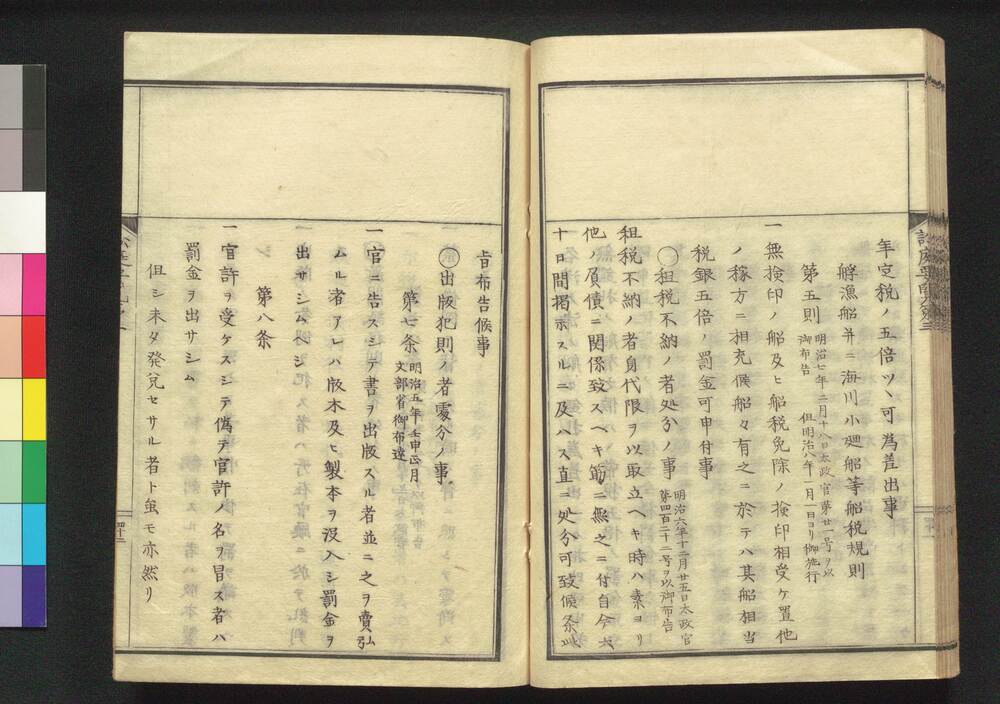 年定税ノ五倍ツヽ可為差出事
艀漁船并ニ海川小廻船等船税規則
第五則 明治七年二月十八日太政官第廿一号ヲ以
御布告 但明治八年一月一日ヨリ御施行
一無検印ノ船及ヒ船税免除ノ検印相受ケ置他
ノ稼方ニ相充候船々有之ニ於テハ其船相当
税銀五倍ノ罰金可申付事
〇租税不納ノ者処分ノ事 明治六年十二月廿五日太政官
第四百二十二号ヲ以御布告
租税不納ノ者身代限ヲ以取立ヘキ時ハ素ヨリ
他ノ負債ニ関係致スヘキ筋ニ無之ニ付自今六
十日間掲示スルニ及ハス直ニ処分可致候条此
旨布告候事
出版犯則ノ者処分ノ事
第七条 明治五年壬申正月
文部省御布達
一官ニ告スシテ書ヲ出版スル者並ニ之ヲ賣弘
ムル者アレハ版木及ヒ製本ヲ没入シ罰金ヲ
出サシムヘシ
第八条
一官許ヲ受ケスシテ偽テ官許ノ名ヲ冒ス者ハ
罰金ヲ出サシム
但シ未タ発兌セサル者ト虽モ亦然リ
四十二